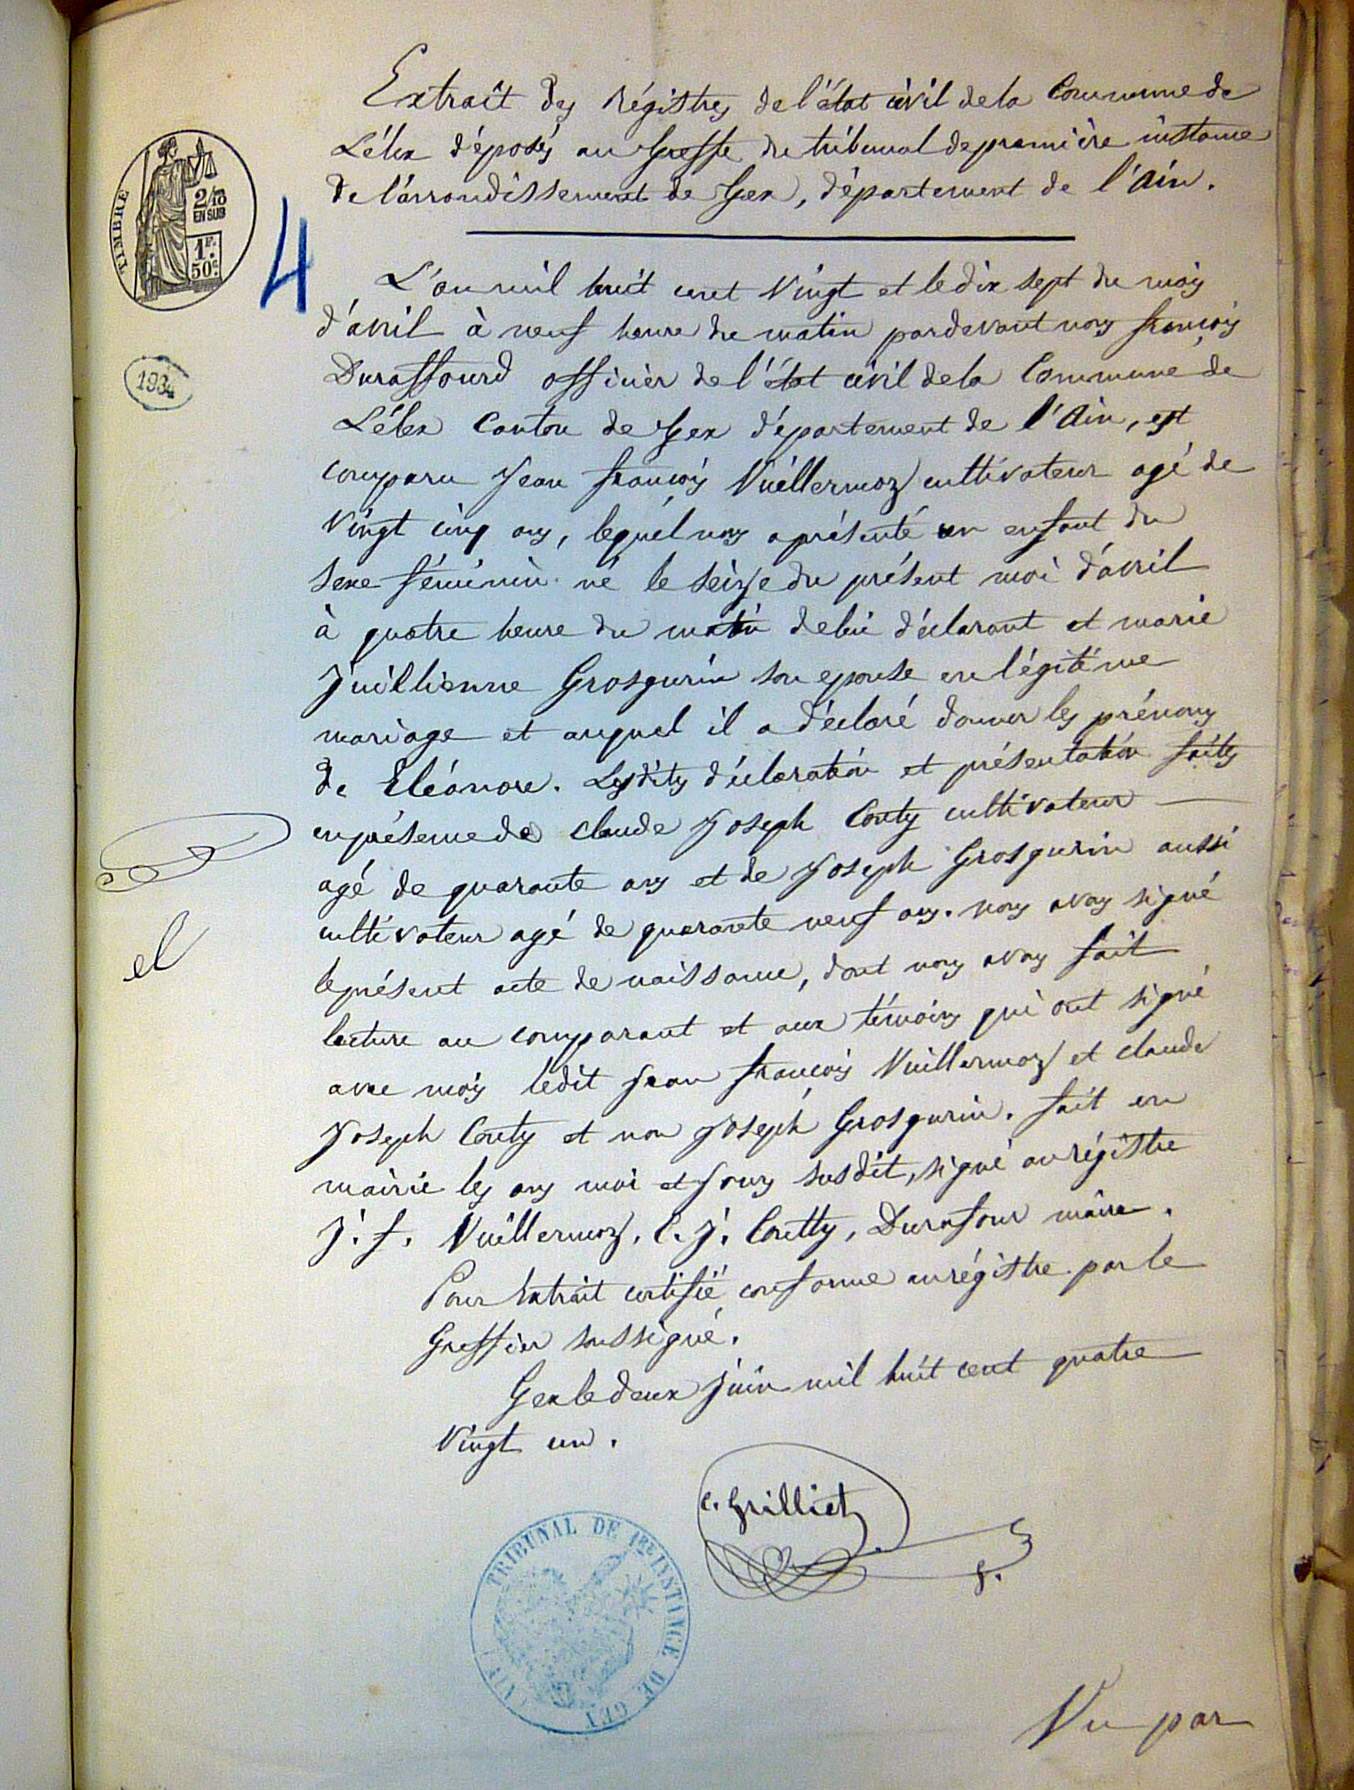 Extrait des Régistres de l'état civil de la Commune de
Lélex déposés au Greffe du tribunal de première instance
de l'arrondissement de Gex, département de l'Ain.
TIMBRE
2/10
EN SUS
1F.
50c.
4
L'an mil huit cent vingt et le dix sept du mois
d'avril à neuf heure du matin pardevant nous françois
1934
Duraffourd officier de l'état civil de la Commune de
Lélex Canton de Gex département de l'Ain, est
comparu Jean françois Vuillermoz cultivateur agé de
vingt cinq ans, lequel nous a présenté un enfant du
sexe féminin né le seize du présent moi d'avril
à quatre heure du matin de lui déclarant et marie
Juillienne Grosgurin son epouse en légitime
mariage et auquel il a déclaré donner les prénoms
de Eléonore. Lesdites déclaration et présentation faites
en présence de Claude Joseph Couty cultivateur
agé de quarante ans et de Joseph Grosgurin aussi
cultivateur agé de quarante neuf ans. nous avons signé
le présent acte de naissance, dont nous avons fait
lecture au comparant et aux témoins qui ont signé
avec mois ledit Jean françois Vuillermoz et claude
Joseph Couty et non Joseph Grosgurin. fait en
mairie les ans moi et jours susdit, signé au régistre
J. f. Vuillermoz, C. J. Coutty, Durafour maire.
Pour Extrait certifié conforme au régistre par le
Greffier soussigné.
Gex le deux juin mil huit cent quatre
vingt un.
C. Grilliet
g.
TRIBUNAL DE 1RE INSTANCE DE GEX (AIN)
Vu par